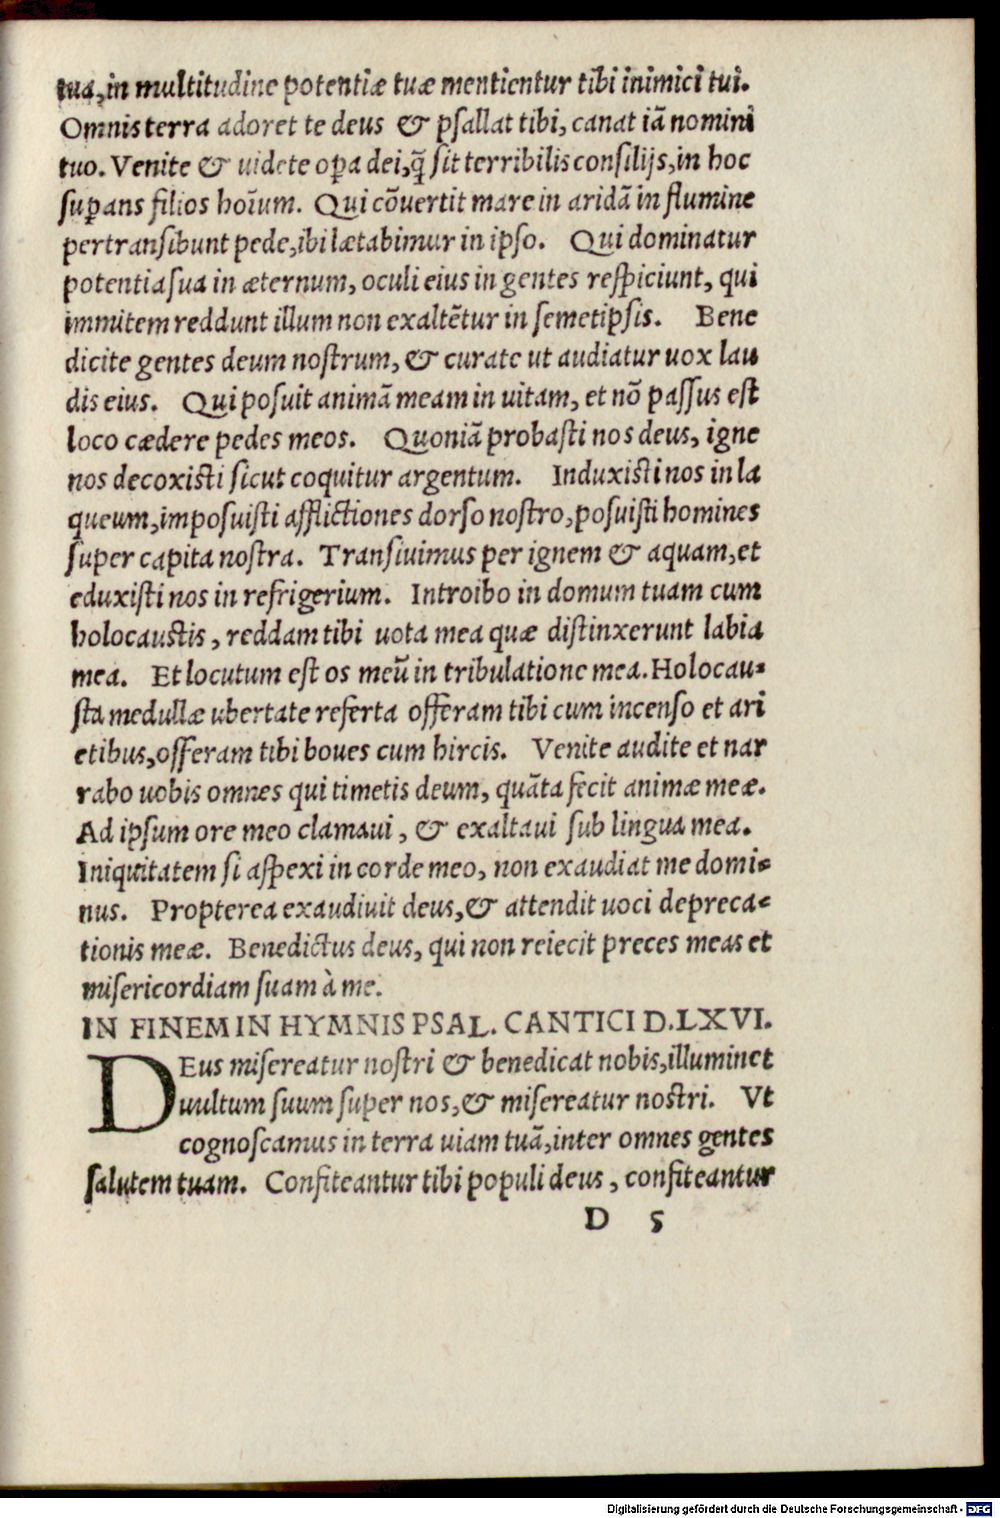 tua, in multitudine potentiæ tuæ mentientur tibi inimici tui.
Omnis terra adoret te deus & psallat tibi, canat iā nomini
tuo. Venite & uidete oꝑa dei, ꝗ̃ sit terribilis consilijs, in hoc
suꝑans filios hoīum. Qui cōuertit mare in aridā in flumine
pertransibunt pede, ibi lætabimur in ipso. Qui dominatur
potentia sua in æternum, oculi eius in gentes respiciunt, qui
immitem reddunt illum non exaltētur in semetipsis. Bene
dicite gentes deum nostrum, & curate ut audiatur uox lau
dis eius. Qui posuit animā meam in uitam, et nō passus est
loco cædere pedes meos. Quoniā probasti nos deus, igne
nos decoxisti sicut coquitur argentum. Induxisti nos in la
queum, imposuisti afflictiones dorso nostro, posuisti homines
super capita nostra. Transiuimus per ignem & aquam, et
eduxisti nos in refrigerium. Introibo in domum tuam cum
holocaustis, reddam tibi uota mea quæ distinxerunt labia
mea. Et locutum est os meū in tribulatione mea. Holocau-
sta medullæ ubertate referta offeram tibi cum incenso et ari
etibus, offeram tibi boues cum hircis. Venite audite et nar
rabo uobis omnes qui timetis deum, quāta fecit animæ meæ.
Ad ipsum ore meo clamaui, & exaltaui sub lingua mea.
Iniquitatem si aspexi in corde meo, non exaudiat me domi-
nus. Propterea exaudiuit deus, & attendit uoci depreca-
tionis meæ. Benedictus deus, qui non reiecit preces meas et
misericordiam suam à me.
IN FINEM IN HYMNIS PSAL. CANTICI D. LXVI.
DEus misereatur nostri & benedicat nobis, illuminet
uultum suum super nos, & misereatur nostri. Vt
cognoscamus in terra uiam tuā, inter omnes gentes
salutem tuam. Confiteantur tibi populi deus, confiteantur
D 5
Digitalisierung gefördert durch die Deutsche Forschungsgemeinschaft - DFG